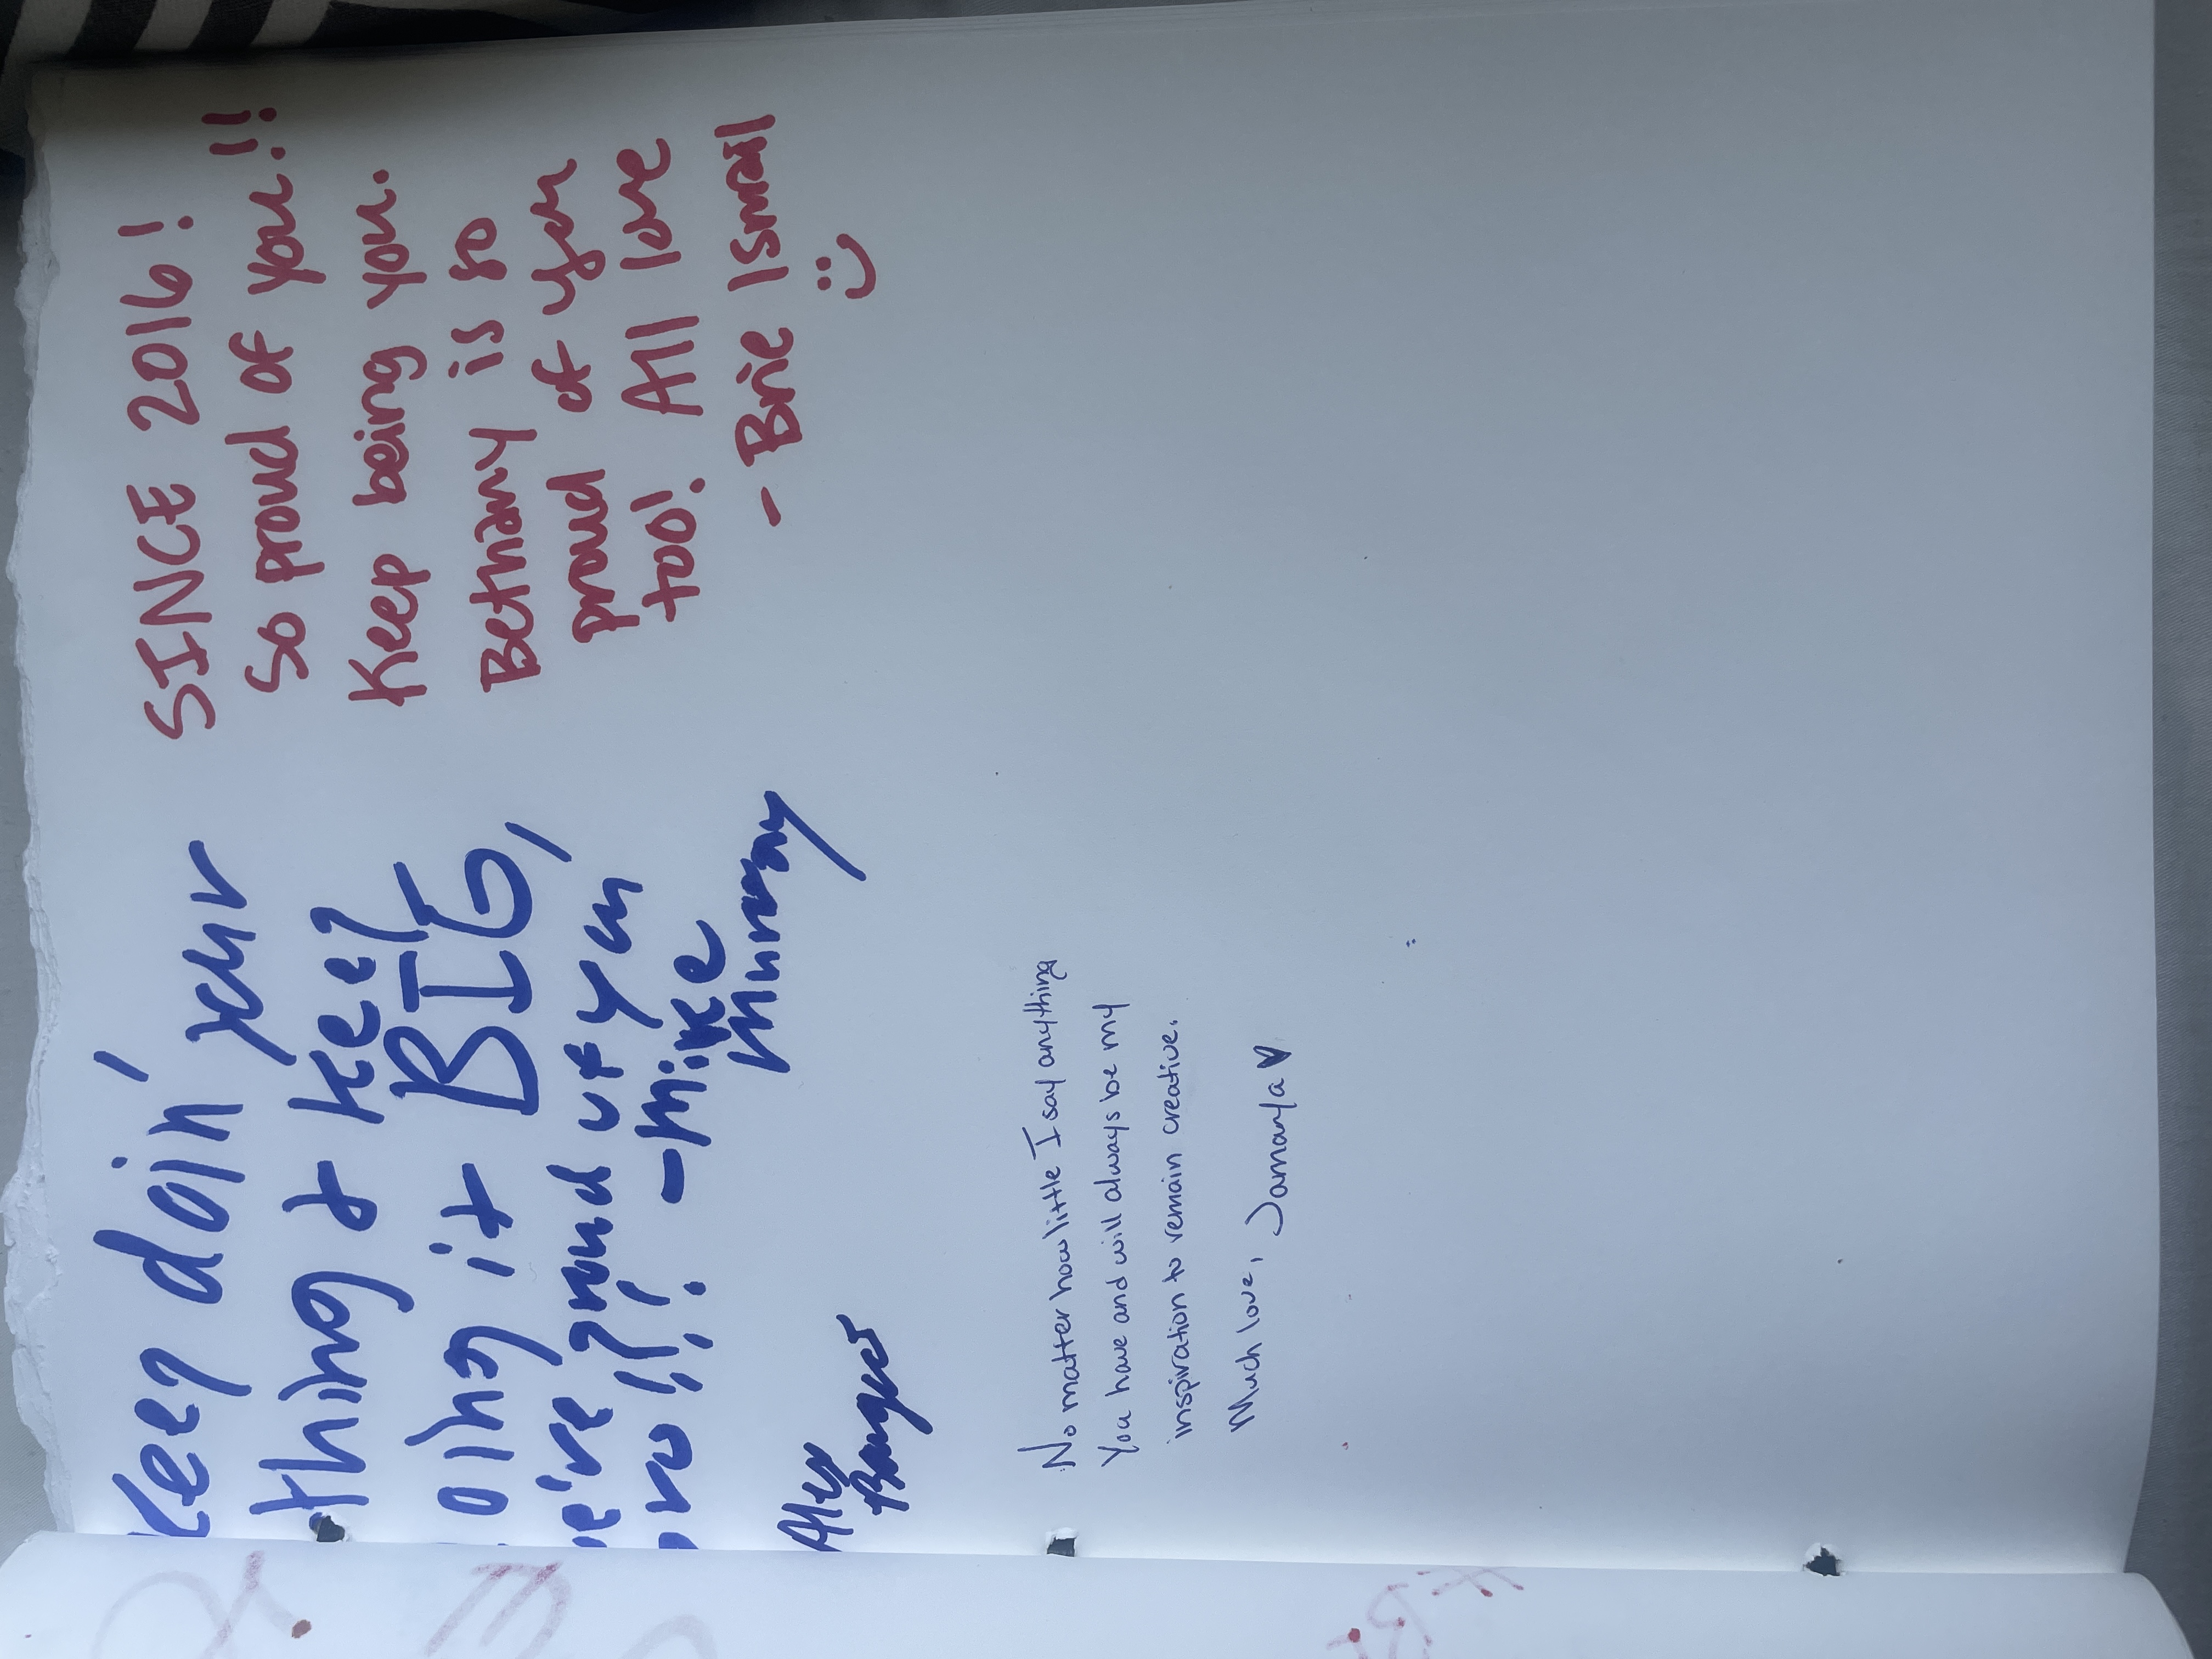 Keep doin' your
thing & keep
doing it BIG,
We're proud of you
bro!!!! -Mike
Murray
Alex
SINCE 2016!
So proud of you!!
Keep being you.
Bethany is so
proud of you
too! All love
- Brie Ismail
No matter how little I say anything
You have and will always be my
inspiration to remain creative.
Much love, Jamaya